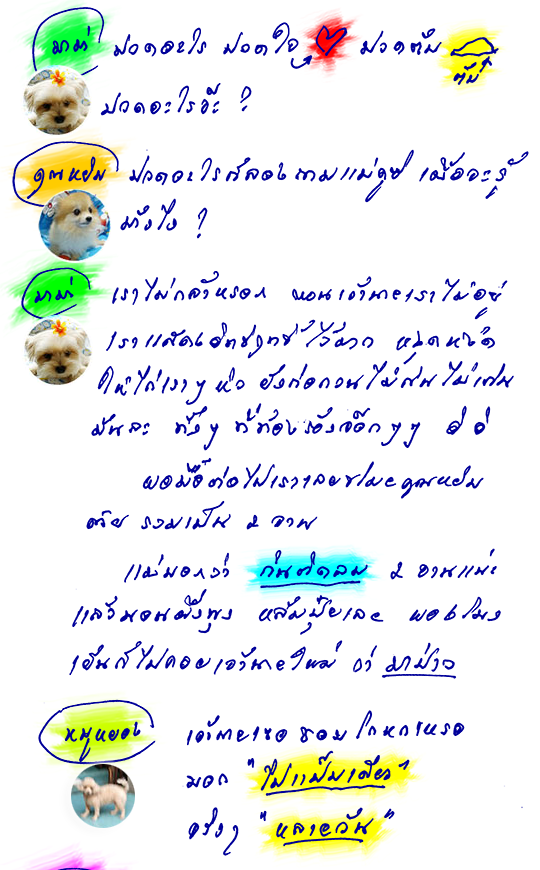 มาม่า ปวดอะไร ปวดใจ ปวดตับ
ตับ
ปวดอะไรจ๊ะ ?
คุณหยิม ปวดอะไรก็ลองถามแม่ดูซิ เผื่อจะรู้
มั่งไง ?
มาม่า เราไม่กล้าหรอก ตอนเจ้านายเราไม่อยู่
เราแสดงอิทธิฤทธิ์ไว้มาก หงุดหงิด
ให้ไก่เราๆ หิว ยังก่อกวนไม่กินไม่เก็บ
มันละ ทั้งๆ ที่ท้องร้องจ๊อกๆๆ อิ อิ
พอมื้อต่อไปเราเลยขโมยคุณหยิม
ด้วย รวมเป็น 2 จาน
แม่บอกว่า กินตัดลม 2 จานแน่ะ
แล้วนอนผึ่งพุง หลับปุ๋ยเลย พอ 5 โมง
เย็นก็ไปคอยเจ้านายใหม่ ว่า มาป่าว
หมูหยอง เจ้านายเธอ ชอบโกหกเหรอ
บอก "ไปแป๊บเดียว"
จริงๆ "หลายวัน"